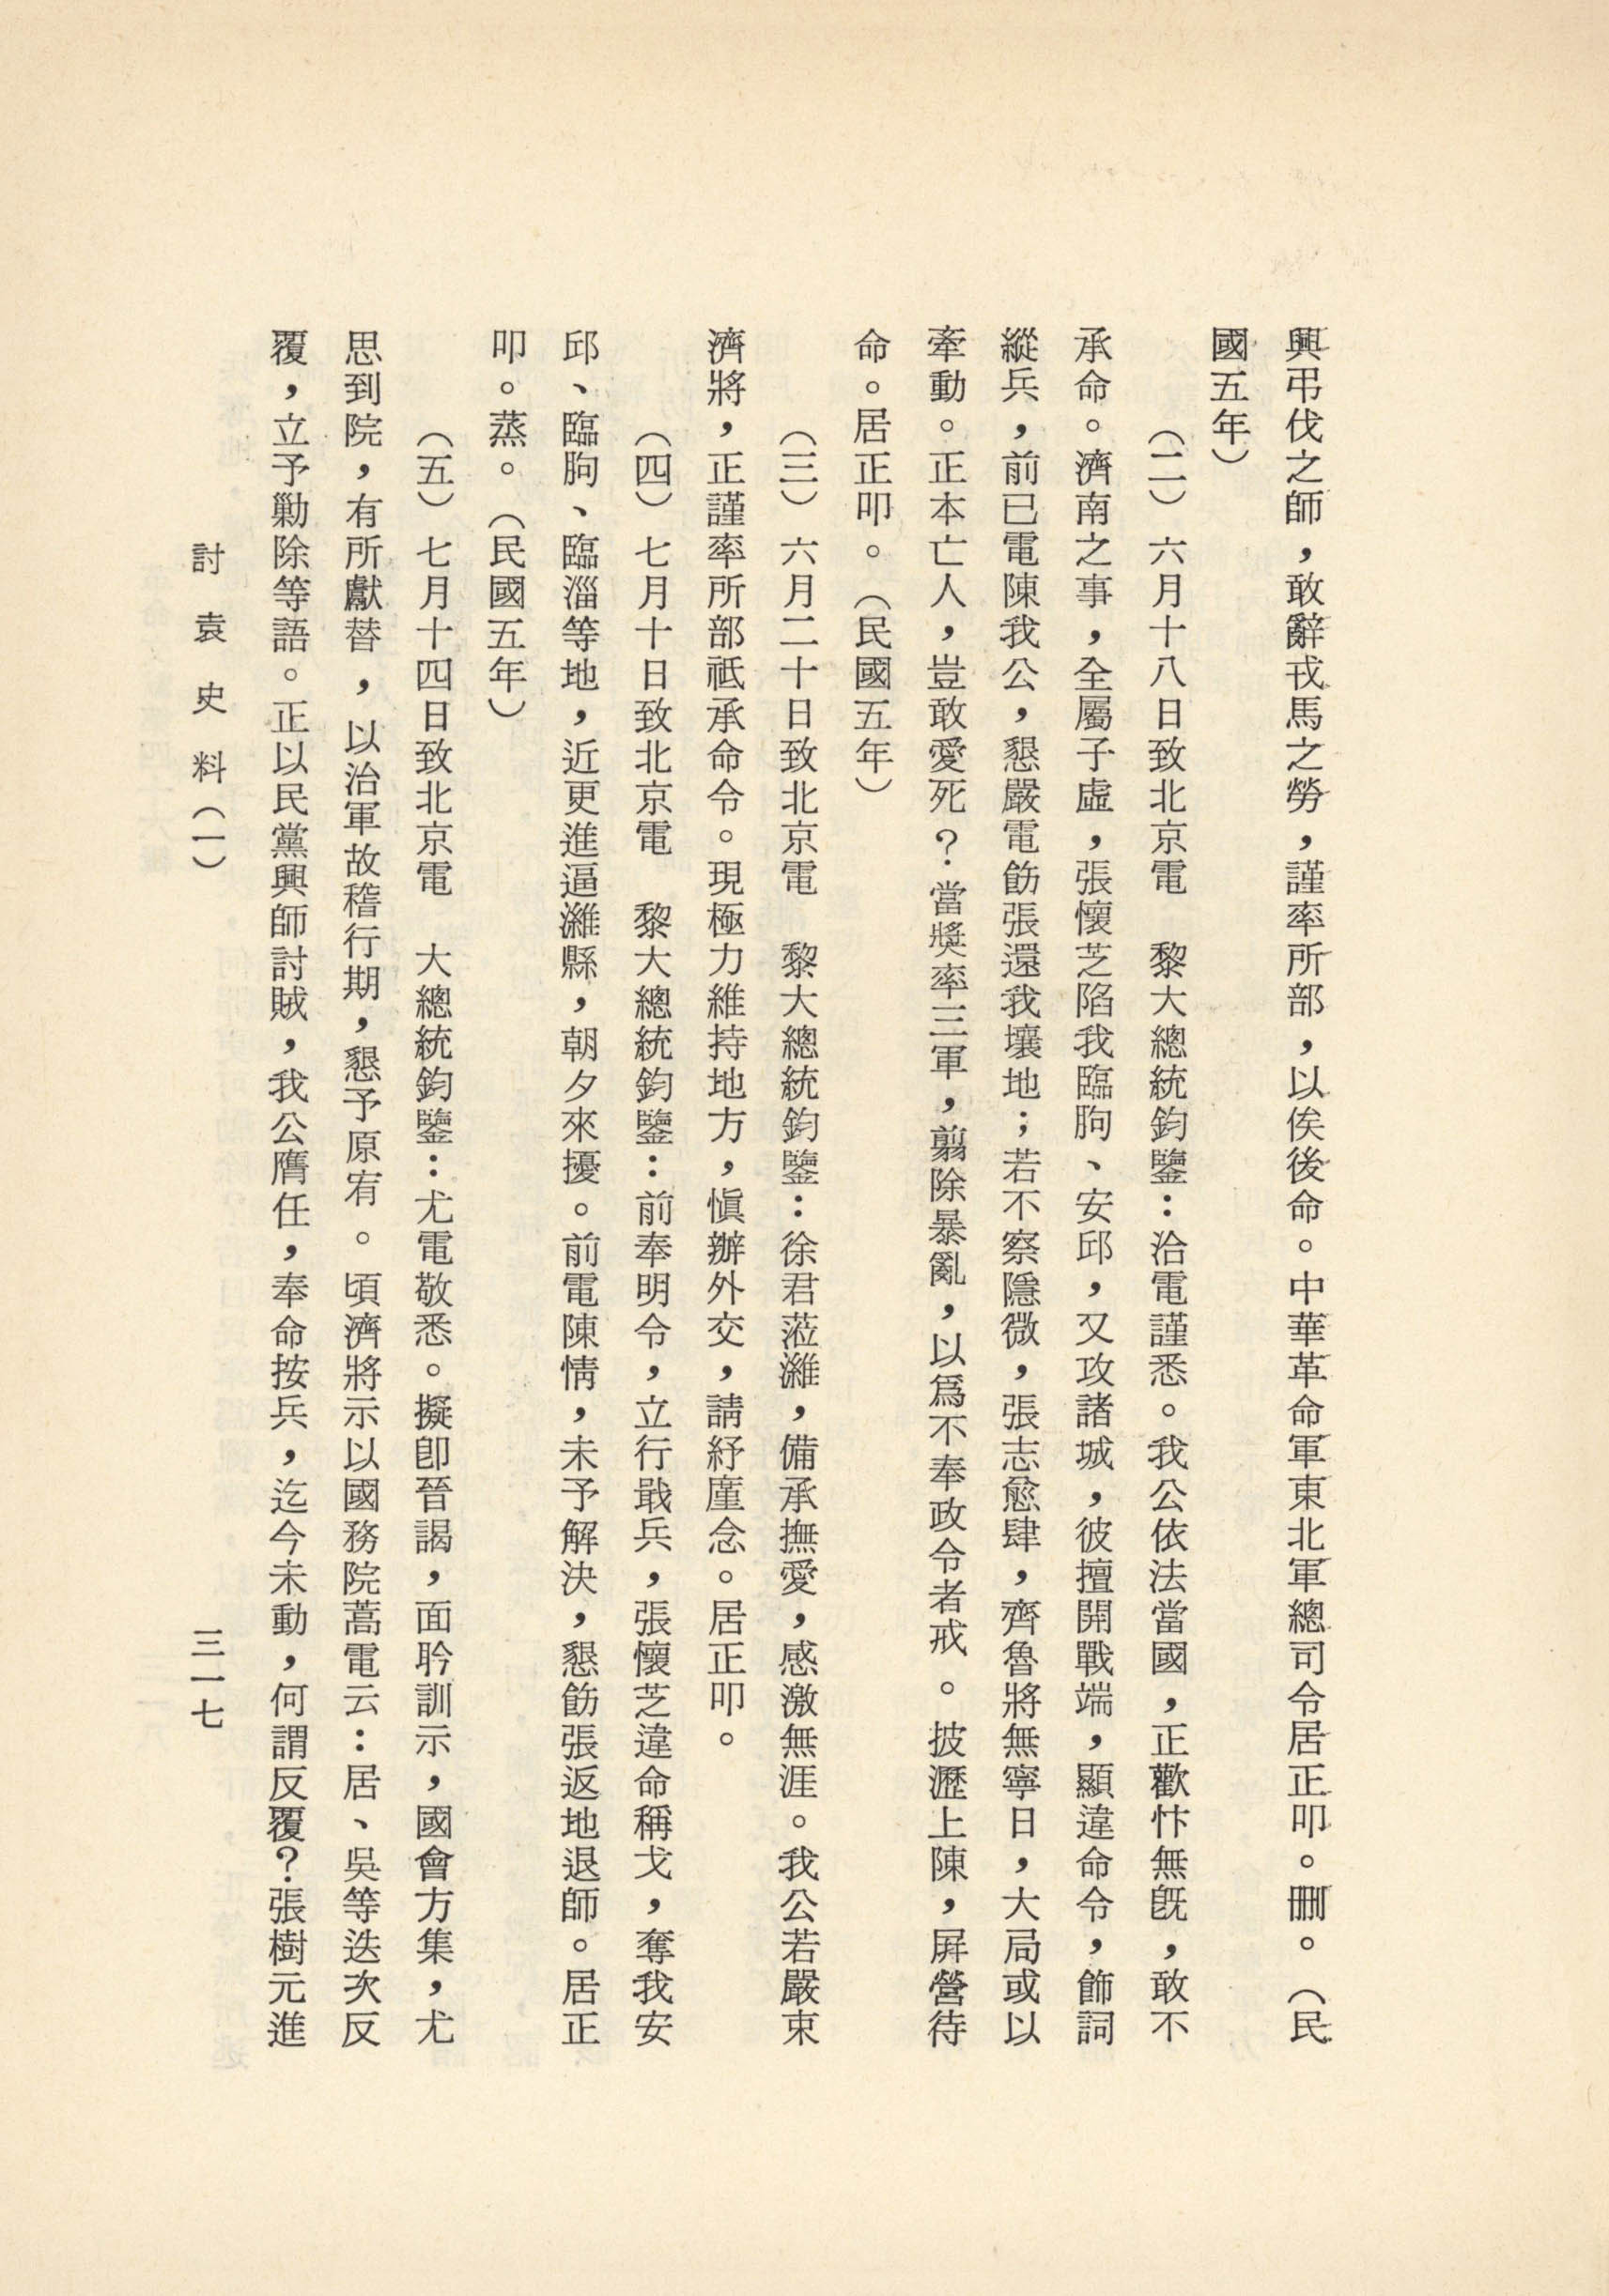 興弔伐之師，敢辭戎馬之勞，謹率所部，以俟後命。中華革命軍東北軍總司令居正叩。刪。（民
國五年）
（二）六月十八日致北京電　黎大總統鈞鑒：洽電謹悉。我公依法當國，正歡忭無旣，敢不
承命。濟南之事，全屬子虛，張懷芝陷我臨朐、安邱，又攻諸城，彼擅開戰端，顯違命令，飾詞
縱兵，前已電陳我公，懇嚴電飭張還我壤地；若不察隱微，張志愈肆，齊魯將無寧日，大局或以
牽動。正本亡人，豈敢愛死？當獎率三軍，翦除暴亂，以爲不奉政令者戒。披瀝上陳，屛營待
命。居正叩。（民國五年）
（三）六月二十日致北京電　黎大總統鈞鑒：徐君蒞濰，備承撫愛，感激無涯。我公若嚴束
濟將，正謹率所部祗承命令。現極力維持地方，愼辦外交，請紓廑念。居正叩。
（四）七月十日致北京電　黎大總統鈞鑒：前奉明令，立行戢兵，張懷芝違命稱戈，奪我安
邱、臨朐、臨淄等地，近更進逼濰縣，朝夕來擾。前電陳情，未予解決，懇飭張返地退師。居正
叩。蒸。（民國五年）
（五）七月十四日致北京電　大總統鈞鑒：尤電敬悉。擬卽晉謁，面聆訓示，國會方集，尤
思到院，有所獻替，以治軍故稽行期，懇予原宥。頃濟將示以國務院蒿電云：居、吳等迭次反
覆，立予勦除等語。正以民黨興師討賊，我公膺任，奉命按兵，迄今未動，何謂反覆？張樹元進
討袁史料（一）
三一七